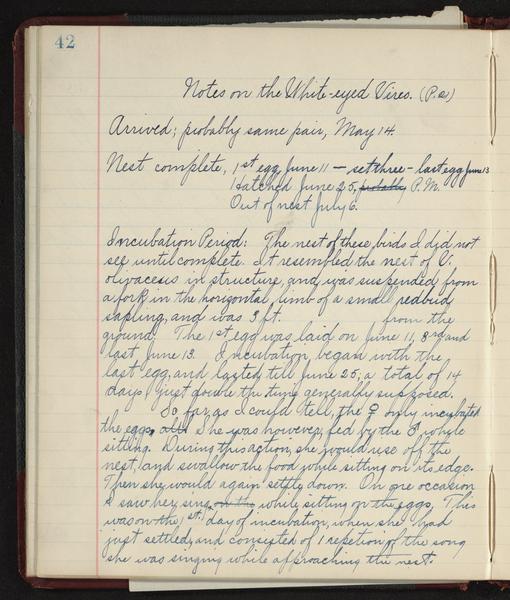 42
Notes on the White-eyed Vireo. (Pa)
Arrived; probably same pair, May 14.
Nest complete, 1st egg, June 11 — set three - last egg June 13
Hatched June 25, probably P.M.
Out of nest July 6.
Incubation Period: The nest of these birds I did not
see until complete. It resembled the nest of V.
olivaceus in structure, and was suspended from
a fork in the horizontal limb of a small redbud
sapling, and was 3 ft. from the
ground. The 1st egg was laid on June 11, 3rd and
last June 13. Incubation began with the
last egg, and lasted till June 25, a total of 14
days, just double the time generally supposed.
So far as I could tell, the ♀ only incubated
the eggs, She was however, fed by the ♂ while
sitting. During this action, she would rise off the
nest, and swallow the food while sitting on its edge.
Then she would again settle down. On one occasion
I saw her sing, on the while sitting on the eggs. This
was on the 1st day of incubation, when she had
just settled, and consisted of 1 repetion of the song
she was singing while approaching the nest.